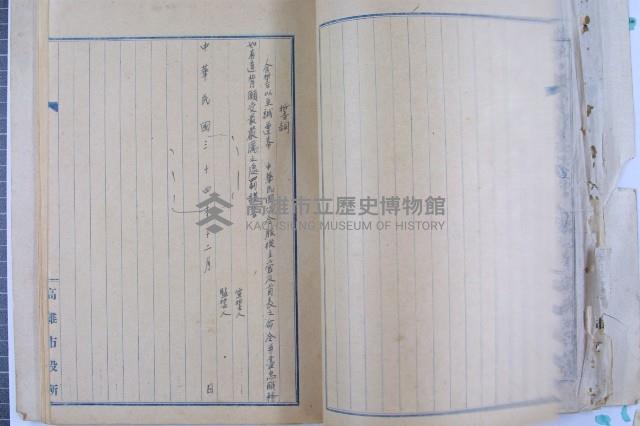 誓詞
余誓以至誠遵奉 中華民國 令服從長官
如有違背願受最嚴厲之處罰謹誓
宣誓人
監誓人
中華民國三十四年十二月 日
高雄市役所
高雄市立歷史博物館
KAOHSIUNG MUSEUM OF HISTORY